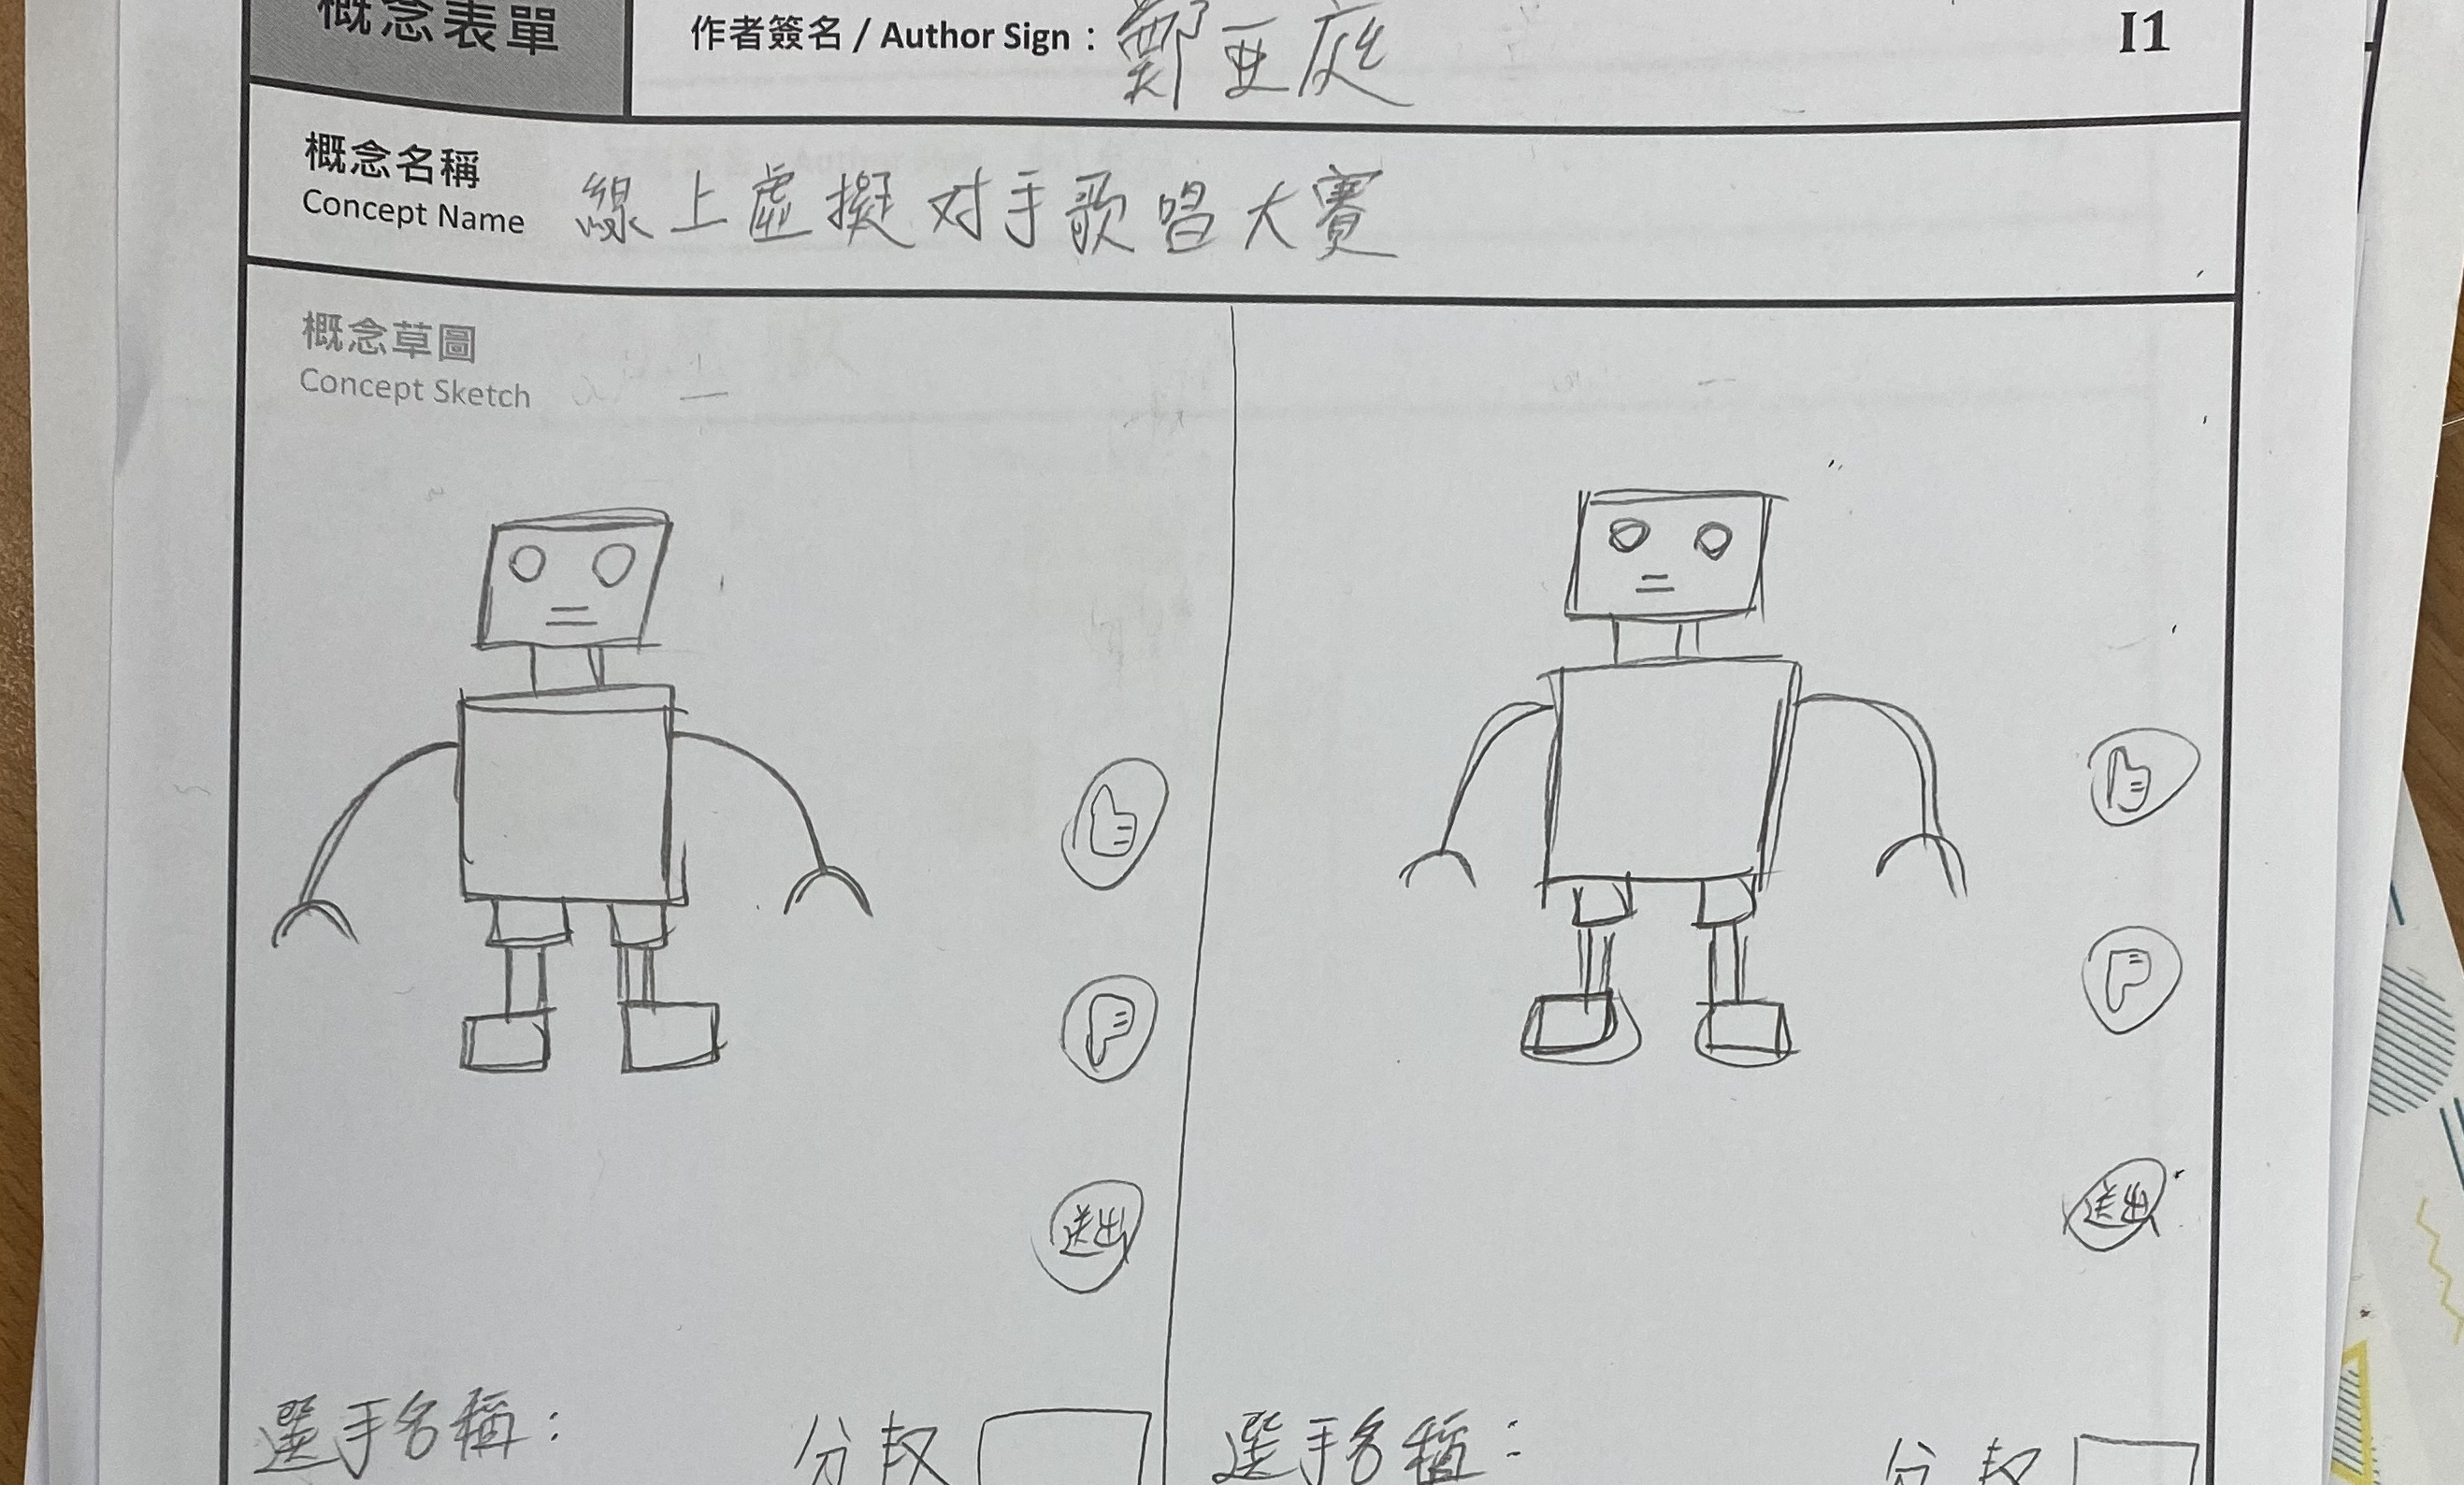 概念表單
作者簽名 / Author Sign : 鄭亞庭
I1
概念名稱
Concept Name
線上虛擬对手歌唱大賽
概念草圖
Concept Sketch
送出
送出
選手名稱：
分
選手名稱：
分